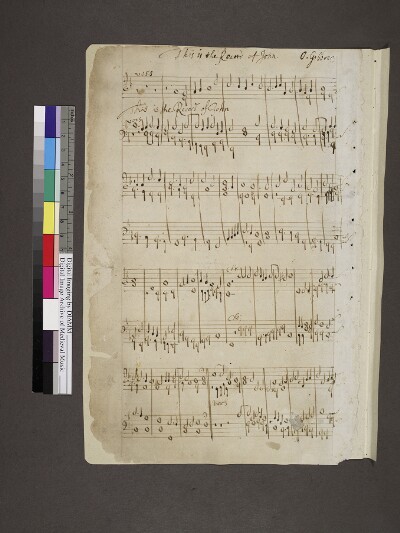 This is the Record of John O. Gibbons
This is the Record of John
Digital Imaging by DIAMM
Digital Image Archive of Medieval Music